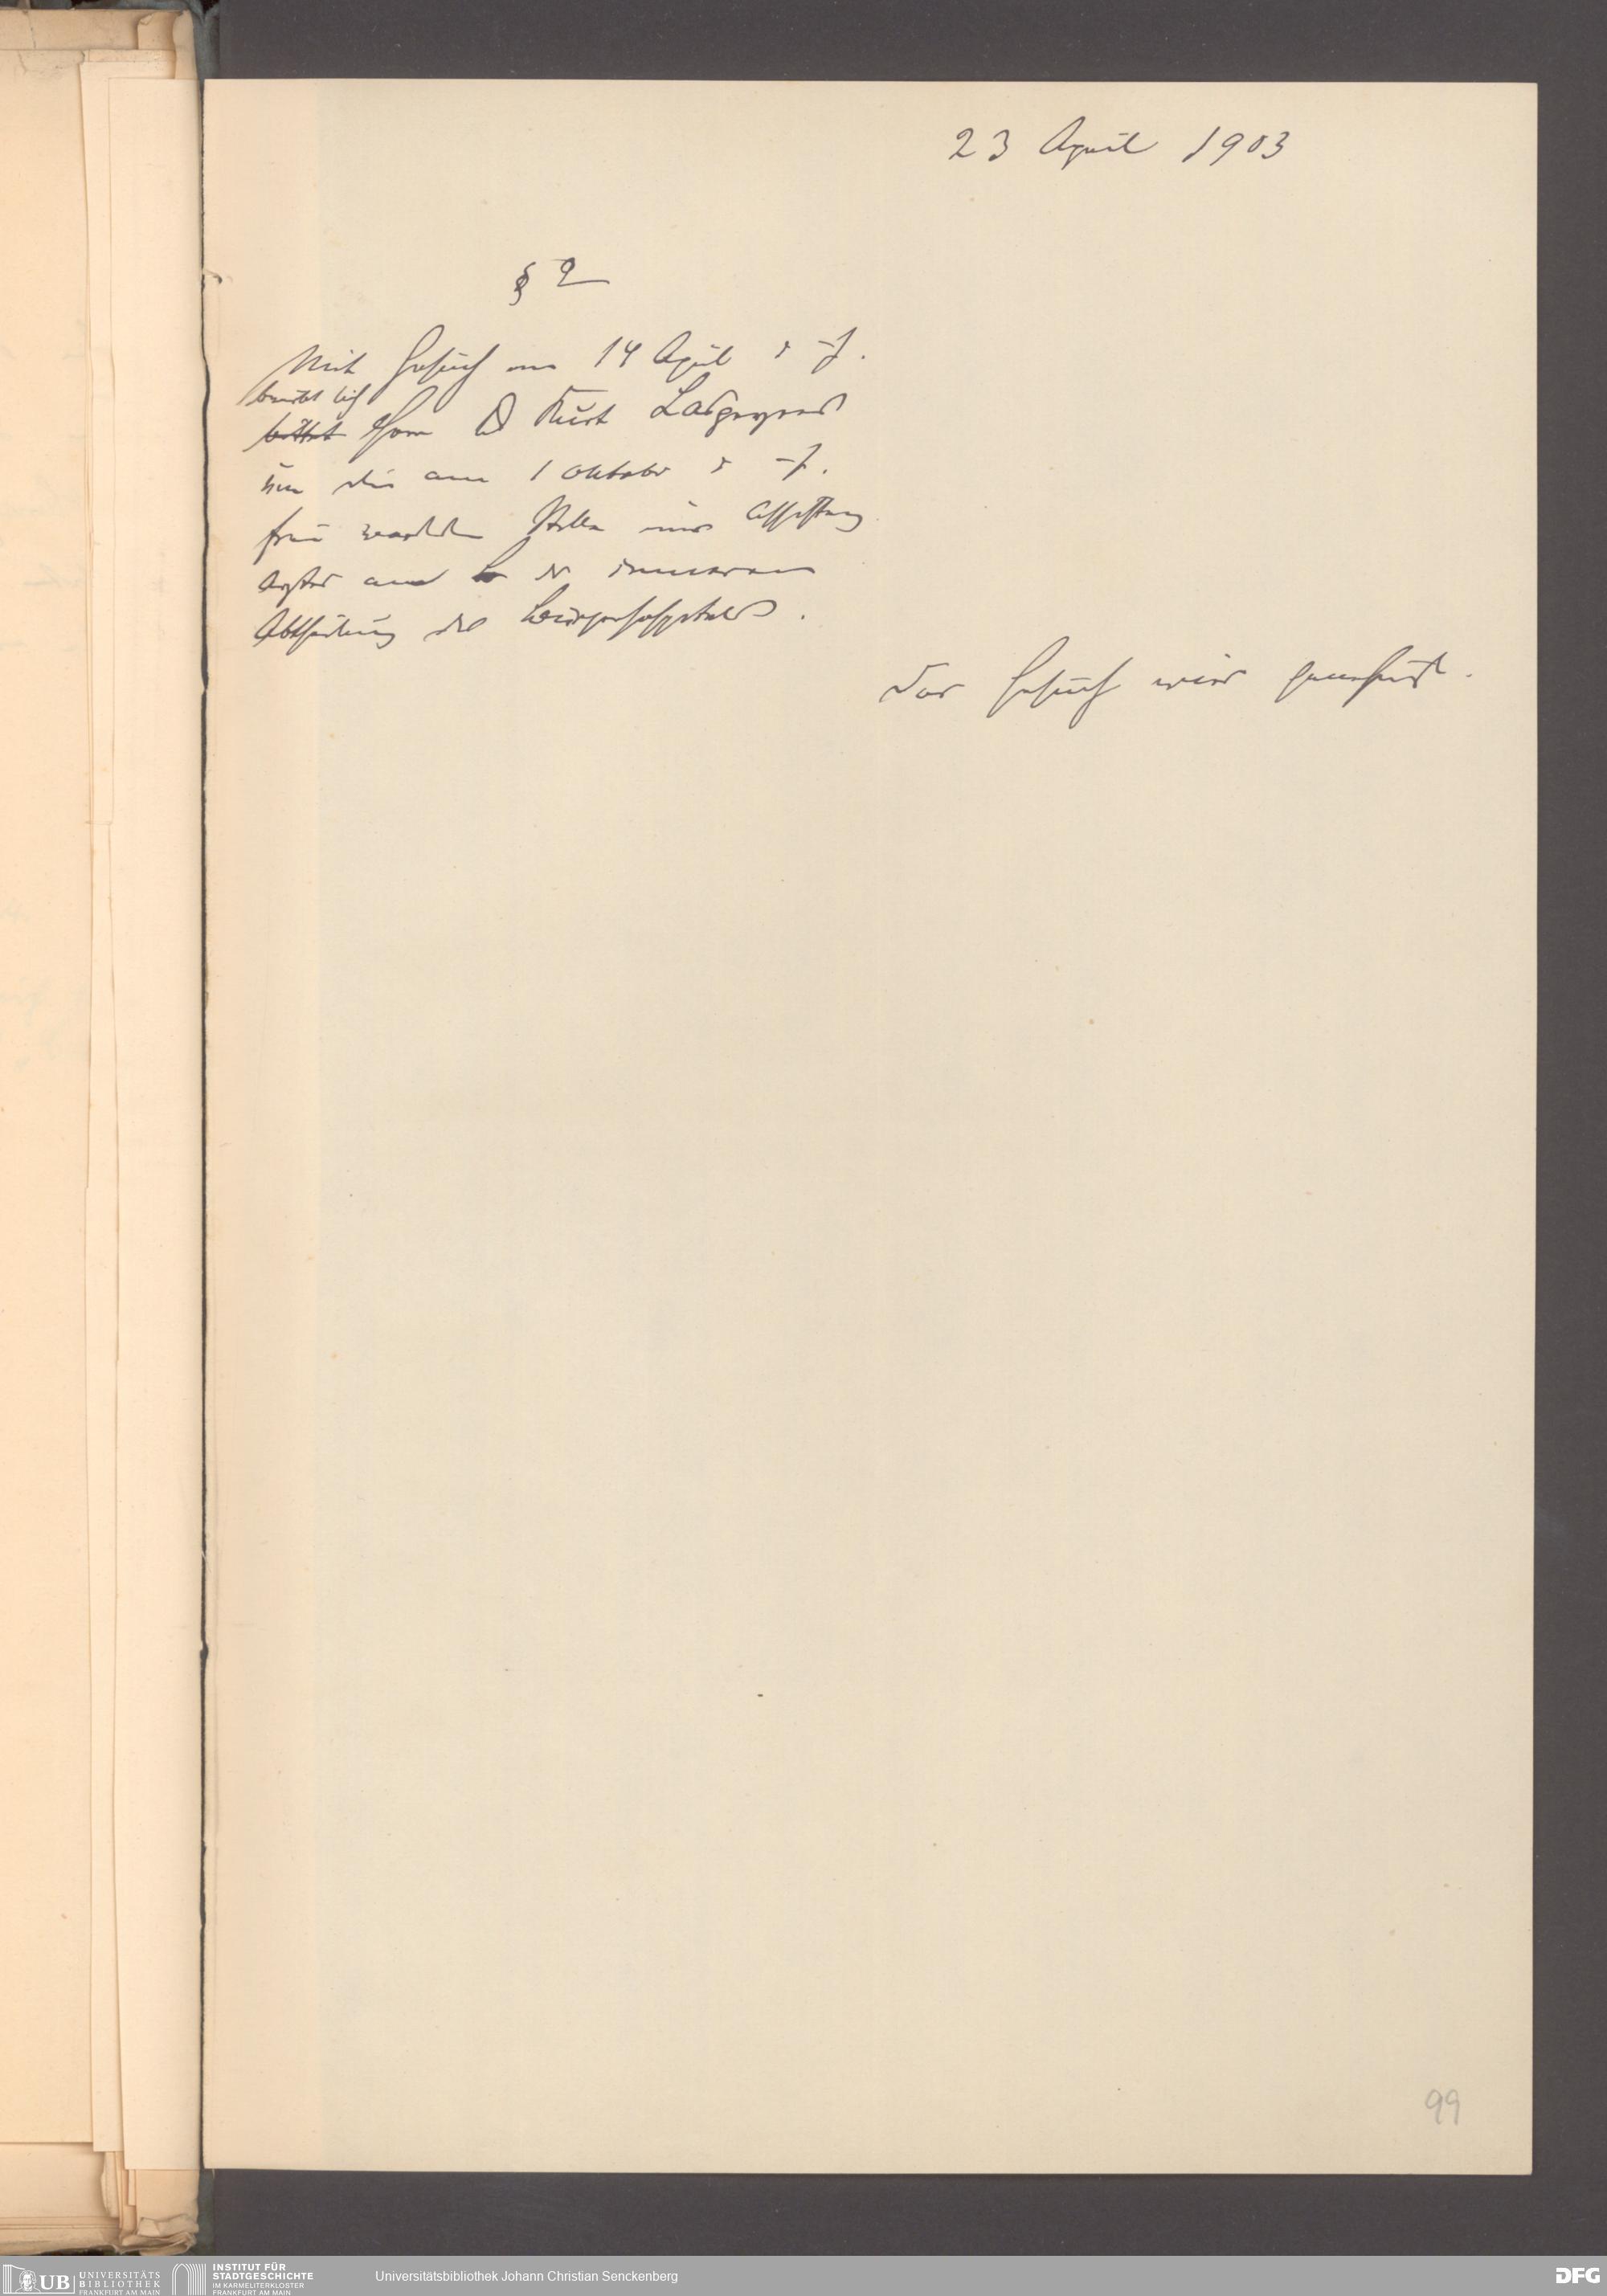 23 April 1903
§ 2
Mit Gesuch vom 14 April d. J.
bewirbt sich
bittet Herr Dr Kurt
um die am 1 Oktober d. J.
frei werdende Stelle eines Assistenz
Arztes an der inneren
Abtheilung des Bürgerhospitals.
Das Gesuch wird genehmigt.
99
UB UNIVERSITÄTS BIBLIOTHEK FRANKFURT AM MAIN
INSTITUT FÜR STADTGESCHICHTE IM KARMELITERKLOSTER FRANKFURT AM MAIN
Universitätsbibliothek Johann Christian Senckenberg
DFG